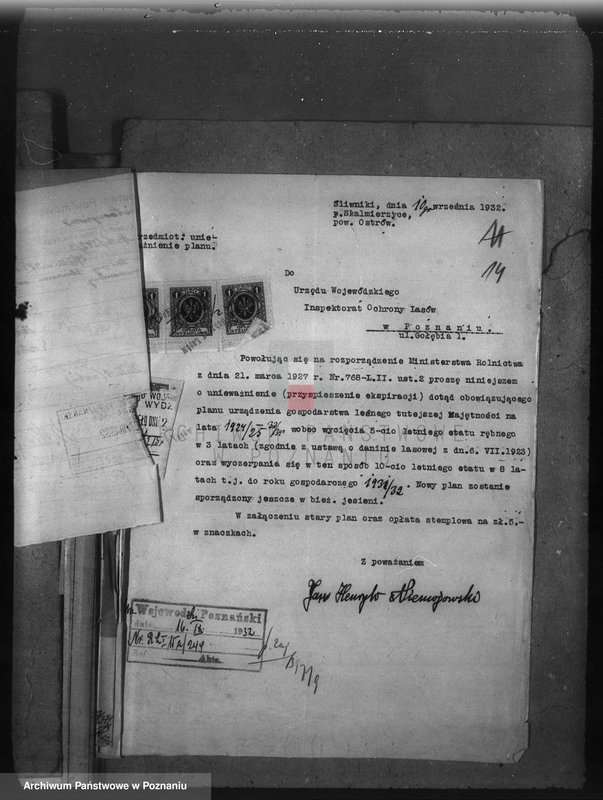 Śliwniki, dnia 10go września 1932.
p.Skalmierzyce,
pow. Ostrów.
14
rzedmiot: unie-
ażnienie planu.
Do
Urzędu Wojewódzkiego
Inspektorat Ochrony Lasów
w Poznaniu.
ul.Gołębia 1.
Powołując się na rozporządzenie Ministerstwa Rolnictwa
z dnia 21. marca 1927 r. Nr.768-L.II. ust.2 proszę niniejszem
o unieważnienie (przyspieszenie ekspiracji) dotąd obowiązującego
planu urządzenia gospodarstwa leśnego tutejszej Majętności na
lata 1924/25 wobec wycięcia 5-cio letniego etatu rębnego
w 3 latach (zgodnie z ustawą o daninie lasowej z dn.6. VII.1923)
oraz wyczerpania się w ten sposób 10-cio letniego etatu w 8 la-
tach t.j. do roku gospodarczego 1931/32. Nowy plan zostanie
sporządzony jeszcze w bież. jesieni.
W załączeniu stary plan oraz opłata stemplowa na zł.5.-
w znaczkach.
Z poważaniem
Jan Henryk Niemojowski
Wojewoda Poznański
dnia 16. IX. 1932
Akta.
Archiwum Państwowe w Poznaniu